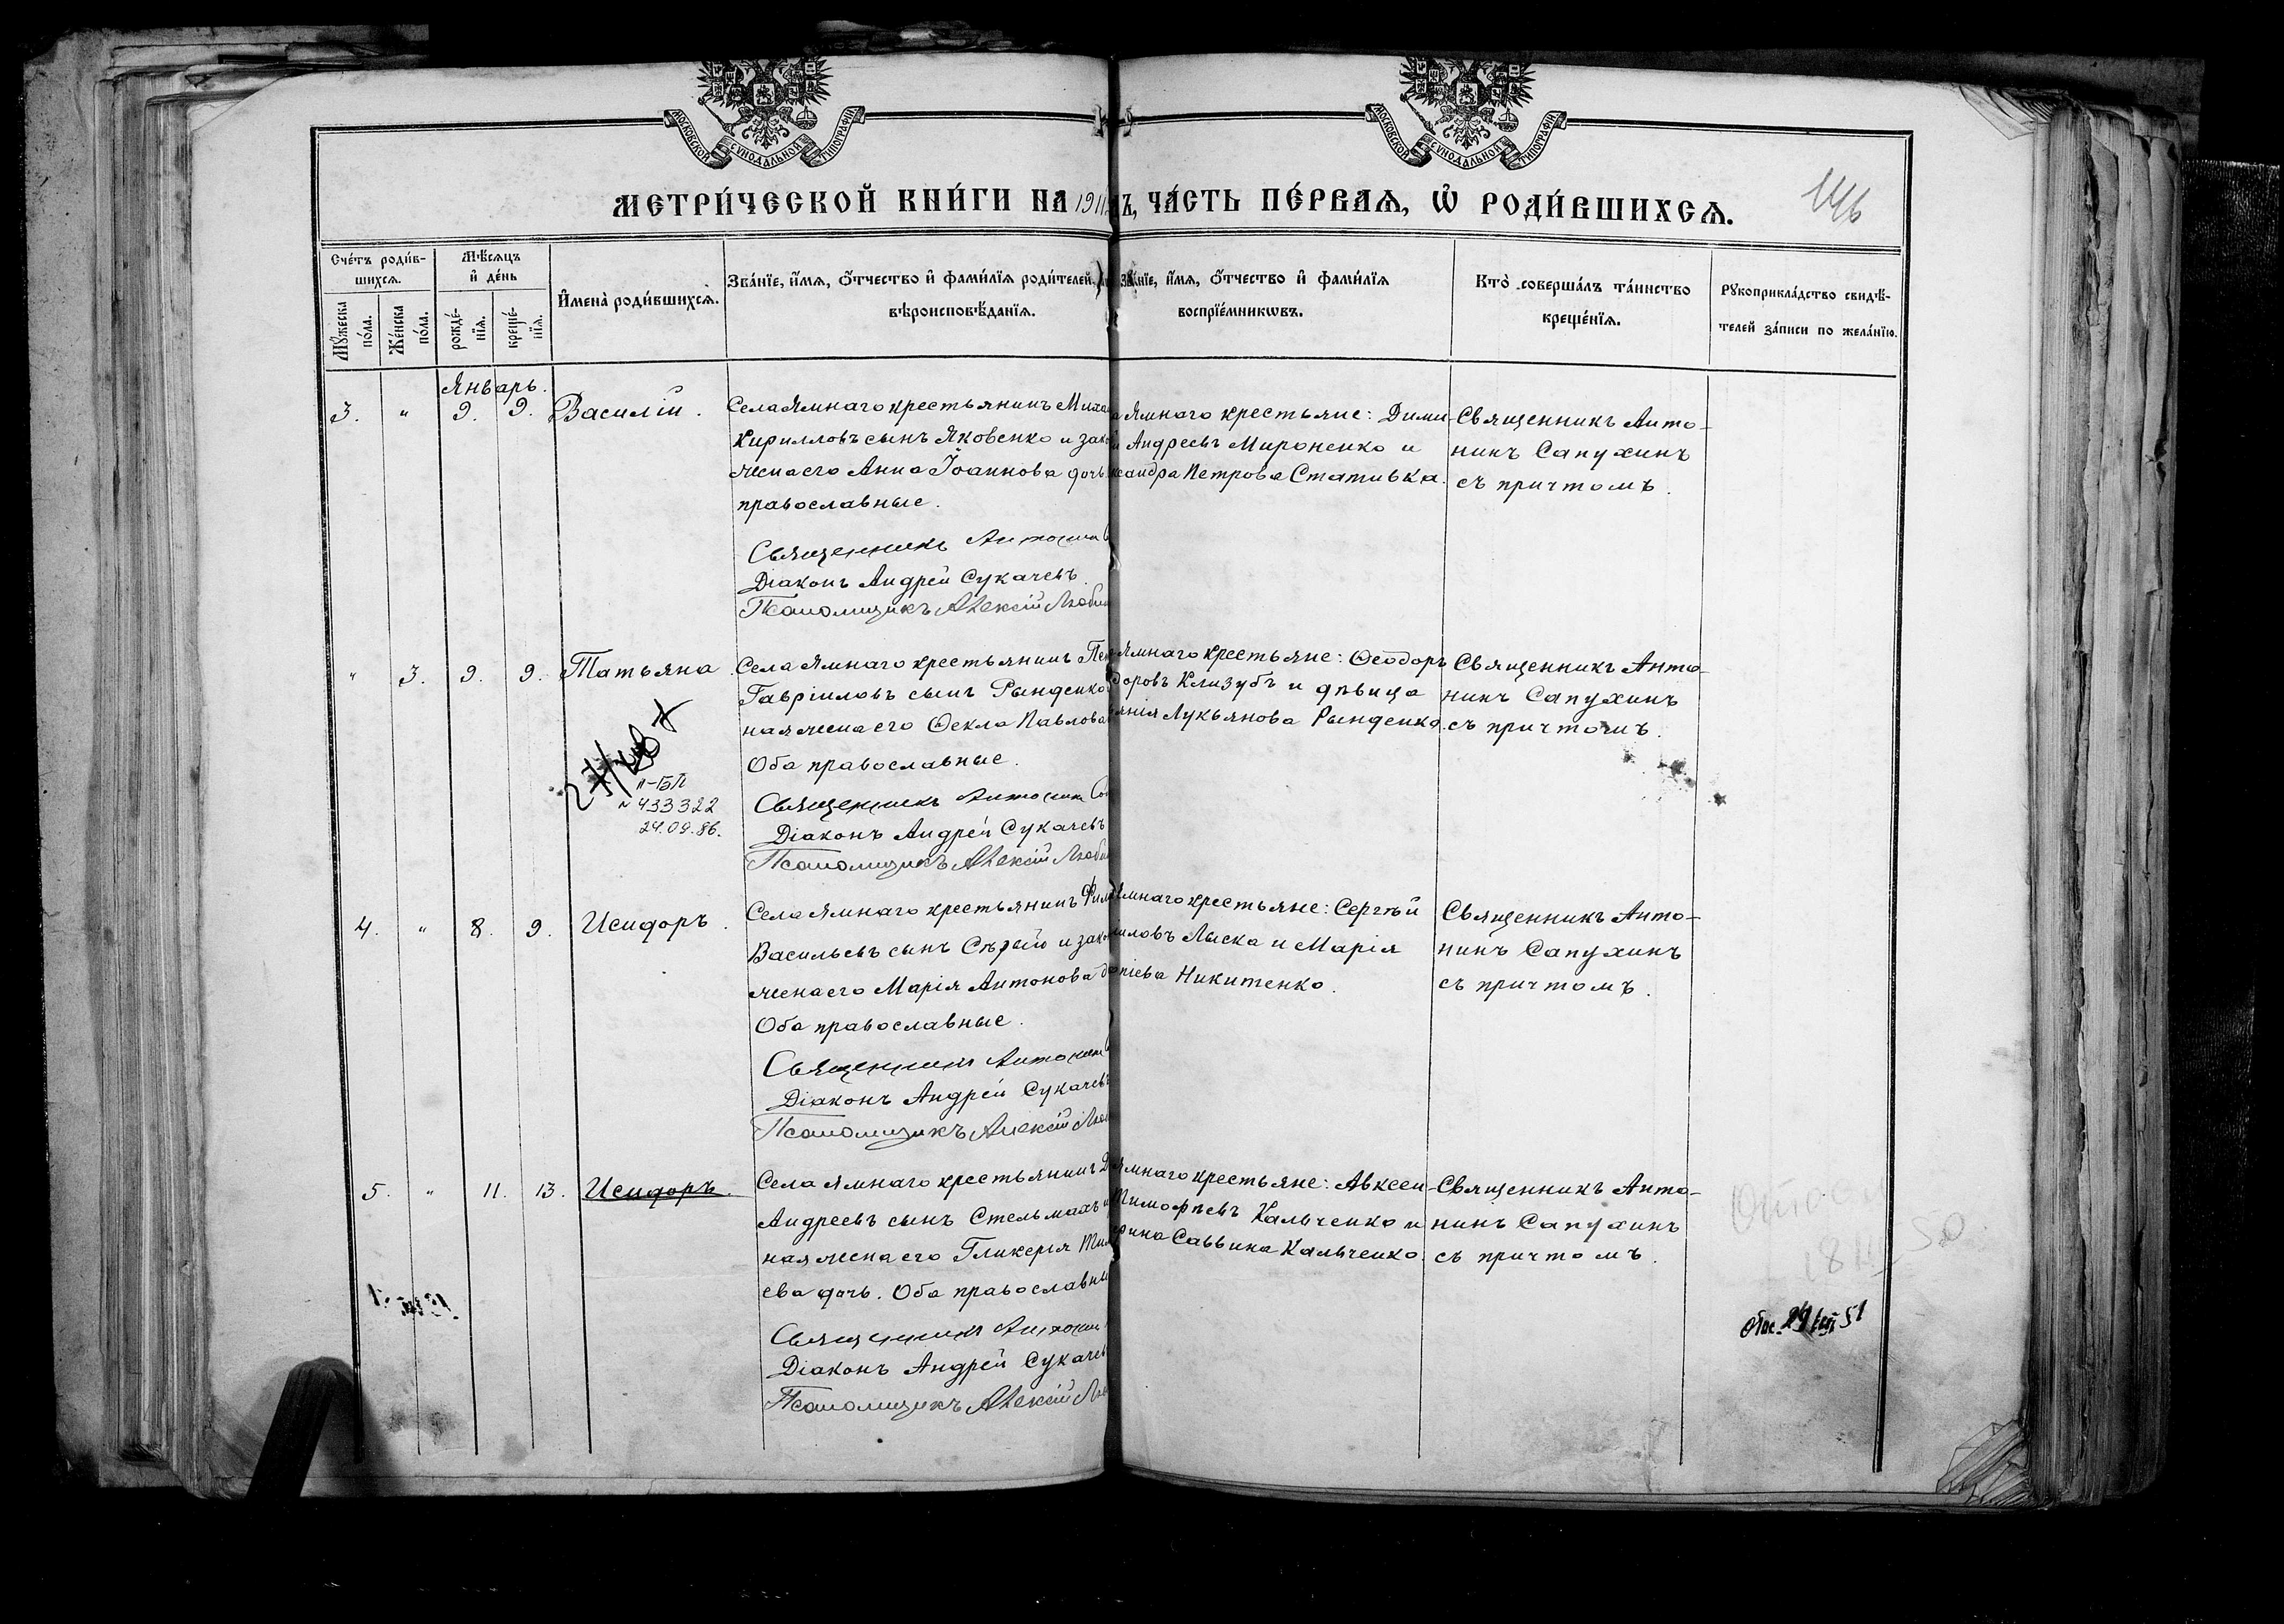 МОСКОВСКОЙ СѴНОДАЛЬНОЙ ТИПОГРАФІИ
МОСКОВСКОЙ СѴНОДАЛЬНОЙ ТИПОГРАФІИ
МЕТРИ́ЧЕСКОЙ КНИ́ГИ НА 1911 Ъ, ЧА́СТЬ ПЕ́РВАѦ, Ѽ РОДИ́ВШИХСѦ.
146
Сче́тъ роди́в-
шихсѧ.
Мꙋ́жеска по́ла.
Же́нска по́ла.
Мѣ́сѧцъ
и҆ де́нь
рожде́-
нїѧ.
креще́-
нїѧ.
И҆мена̀ роди́вшихсѧ.
Зва́нїе, и҆́мѧ, ѻ҆́тчество и҆ фами́лїѧ роди́телей,
вѣроисповѣ́данїѧ.
Зва́нїе, и҆́мѧ, ѻ҆́тчество и҆ фами́лїѧ
воспрїе́мникѡвъ.
Кто̀ соверша́лъ та́инство
креще́нїѧ.
Рꙋкоприкла́дство свидѣ́-
телей за́писи по жела́нїю.
Январь.
3. " 9. 9. Василій.
Села Ямнаго крестьянинъ Миха
Кирилловъ сынъ Яковенко и зак
жена его Анна Іоаннова дочь
православные.
Священникъ Антонин
Діаконъ Андрей Сукачевъ.
Псаломщикъ Алексій Люби
а Ямнаго крестьяне: Дими-
й Андреевъ Мироненко и
ксандра Петрова Стативка.
Священникъ Анто-
нинъ Сапухинъ
съ причтомъ.
" 3. 9. 9. Татьяна.
27/
п-БП
N 433322
24.09.86.
Села Ямнаго крестьянинъ
Гавріиловъ сынъ Рынденко
ная жена его Ѳекла Павлова
Оба православные.
Священникъ Антонин
Діаконъ Андрей Сукачевъ
Псаломщикъ Алексій Люби
Ямнаго крестьяне: Ѳеодоръ
доровъ Клизубъ и дѣвица
Лукьянова Рынденко.
Священникъ Анто-
нинъ Сапухинъ
съ причтомъ.
4. " 8. 9. Исидоръ.
Села Ямнаго крестьянинъ Фили
Васильевъ сынъ Сѣрый и зак
жена его Марія Антонова д
Оба православные.
Священникъ Антонин
Діаконъ Андрей Сукачевъ
Псаломщикъ Алексій Люб
Ямнаго крестьяне: Сергѣй
иловъ Лыска и Марія
Никитенко.
Священникъ Анто-
нинъ Сапухинъ
съ причтомъ.
5. " 11. 13. Исидоръ.
Села Ямнаго крестьянинъ Д
Андреевъ сынъ Стельмахъ и
ная жена его Гликерія Тим
ева дочь. Оба православны
Священникъ Антонин
Діаконъ Андрей Сукачев
Псаломщикъ Алексій Лю
Ямнаго крестьяне: Авксен-
Тимофѣевъ Кальченко и
рина Саввина Кальченко.
Священникъ Анто-
нинъ Сапухинъ
съ причтомъ.
50
51